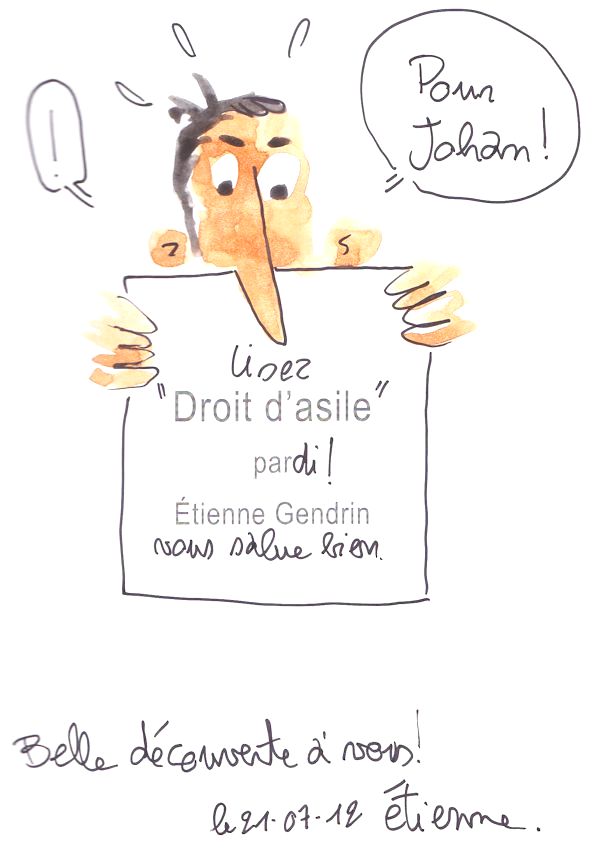 !
Pour
Johan!
Lisez
"Droit d'asile"
pardi!
Étienne Gendrin
vous salue bien.
Belle découverte à vous!
le 21-07-12 Étienne.